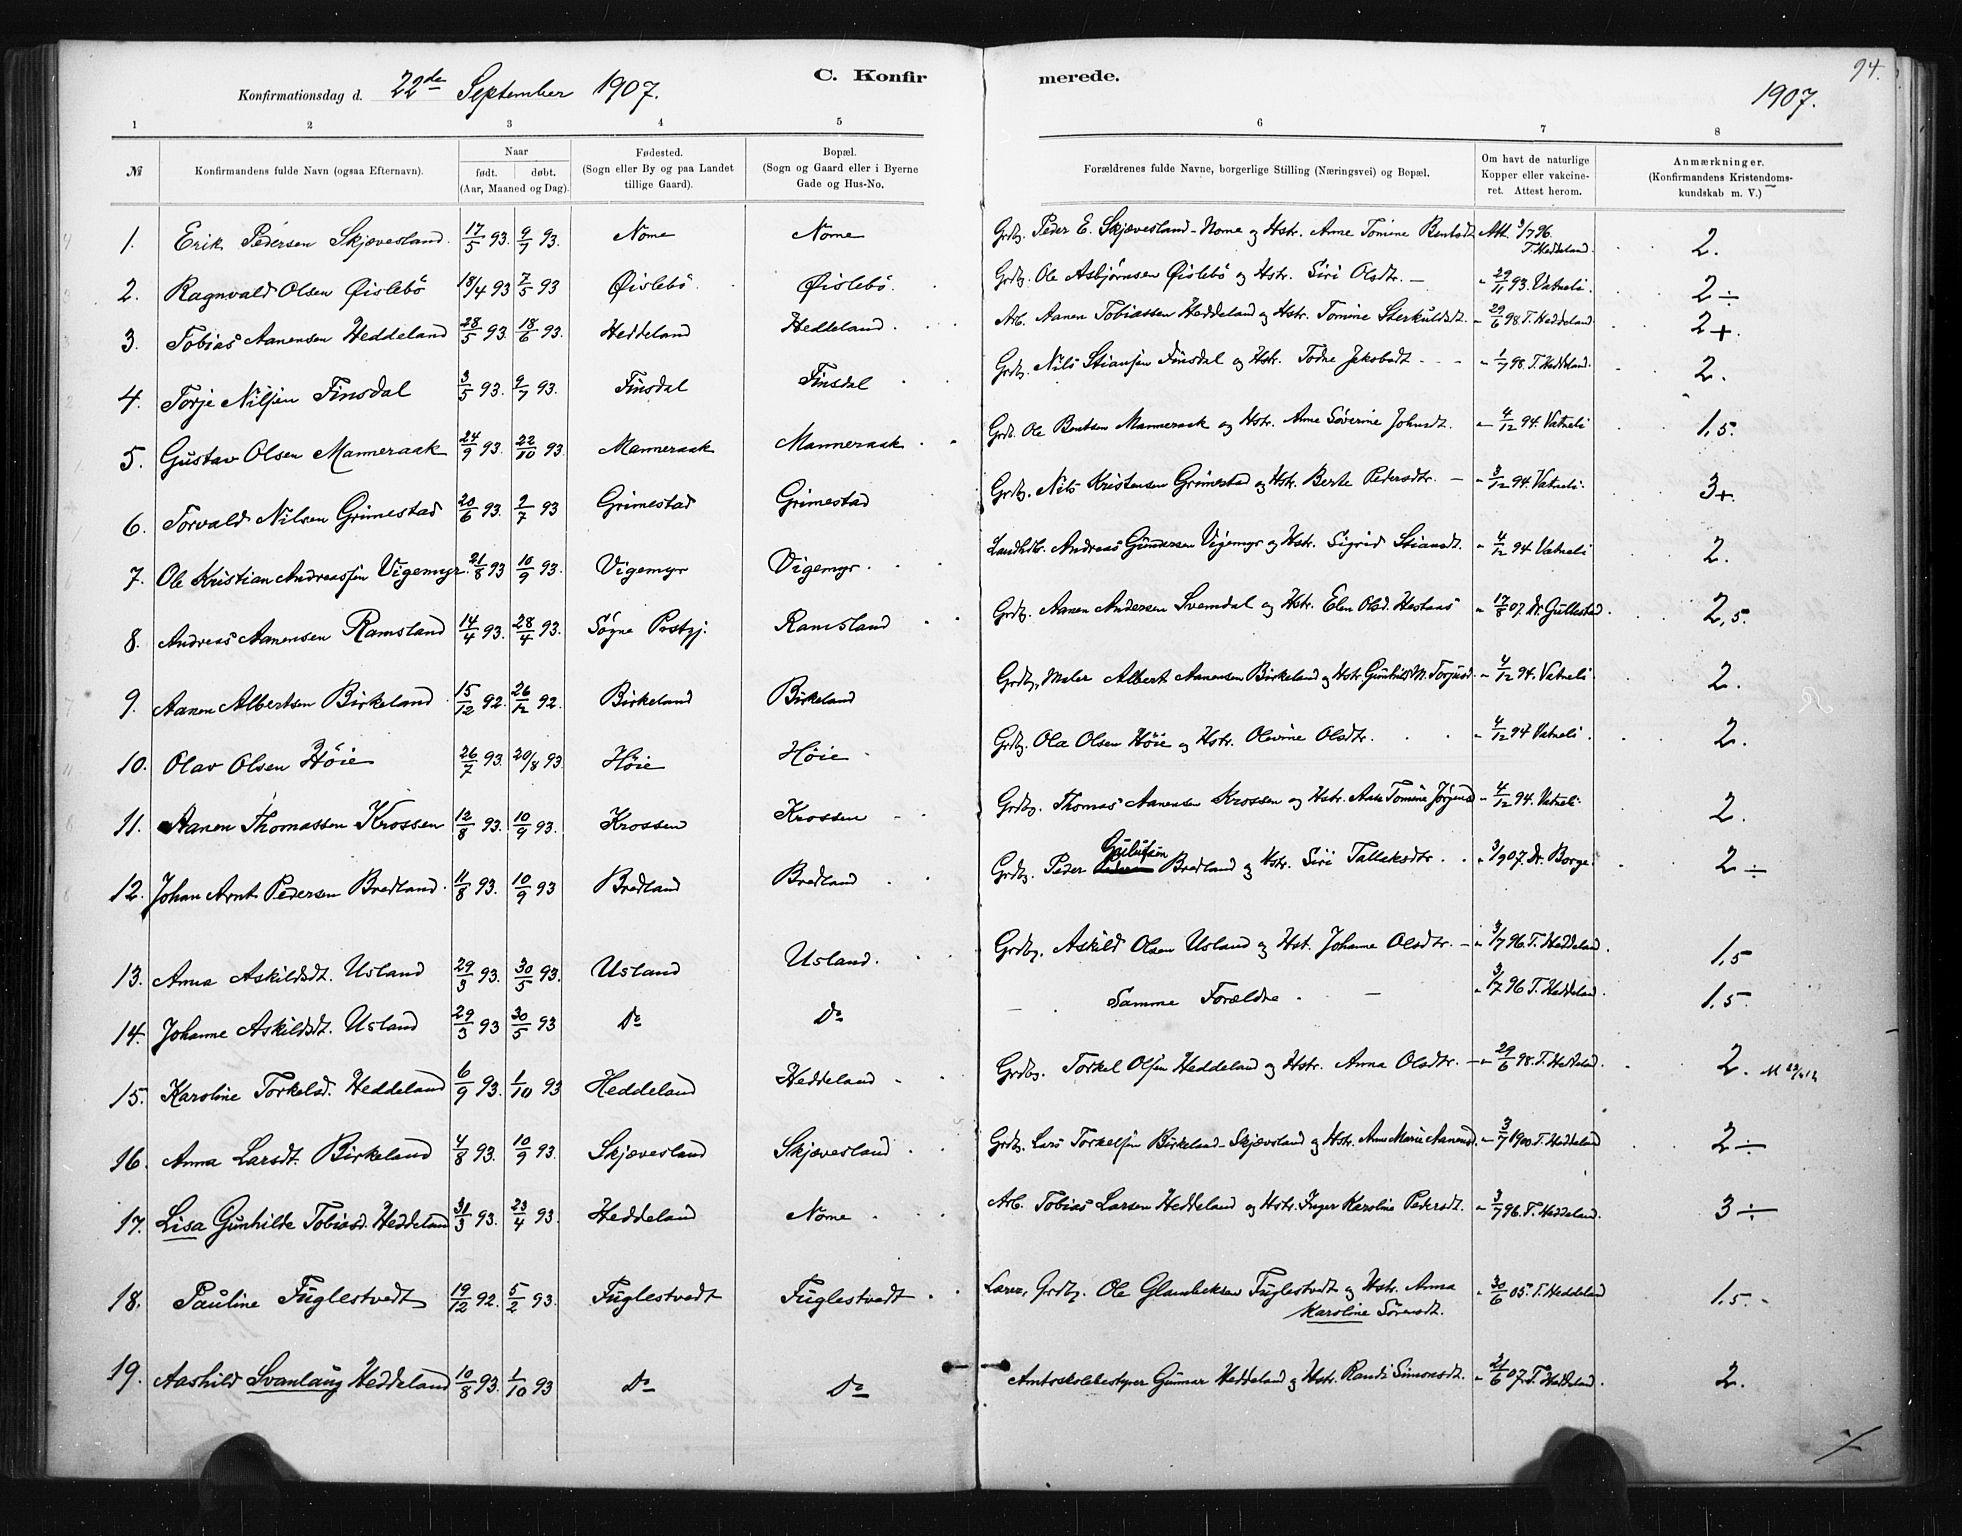 94.
C. Konfirmerede.
Konfirmationsdag d. 22de September 1907.
1907.
1 2 3 4 5 6 7 8
№ Konfirmandens fulde Navn (ogsaa Efternavn). Naar født. døbt. (Aar, Maaned og Dag). Fødested. (Sogn eller By og paa Landet tillige Gaard). Bopæl. (Sogn og Gaard eller i Byerne Gade og Hus-No. Forældrenes fulde Navne, borgerlige Stilling (Næringsvei) og Bopæl. Om havt de naturlige Kopper eller vakcineret. Attest herom. Anmærkninger. (Konfirmandens Kristendomskundskab m. V.)
1. Erik Pedersen Skjævesland. 17/5 93. 9/7 93. Nome Nome Grdbg. Peder E. Skjævesland-Nome og Hstr. Anne Tomine Bentsdt. Att. 3/7 96. T. Heddeland. 2.
2. Ragnvald Olsen Øislebö 18/4 93 7/5 93 Øislebö Øislebö. Grdbg. Ole Asbjørnsen Øislebö og Hstr. Siri Olsdtr. — „ 29/11 93. Vatneli. 2 ÷
3. Tobias Aanensen Heddeland 28/5 93. 18/6 93. Heddeland Heddeland. Arb. Aanen Tobiassen Heddeland og Hstr. Tomine Sterkuldsdt. „ 29/6 98. T. Heddeland. 2+.
4. Torje Nilsen Finsdal 3/5 93. 9/7 93. Finsdal Finsdal Grdbg. Nils Stiansen Finsdal og Hstr. Todne Jakobsdt. „ 1/7 98. T. Heddeland. 2.
5. Gustav Olsen Manneraak 24/9 93. 22/10 93. Manneraak Manneraak Grdb. Ole Bentsen Manneraak og Hstr. Anne Søverine Johnsdt. „ 4/12 94. Vatneli 1,5.
6. Torvald Nilsen Grimestad 20/6 93. 2/7 93 Grimestad Grimestad Grdbg. Nils Kristensen Grimestad og Hstr. Berte Pedersdtr. — „ 3/12 94. Vatneli. 3+.
7. Ole Kristian Andreassen Vigemyr. 21/8 93 10/9 93. Vigemyr Vigemyr. Andreas Gundersen Vigemyr og Hstr. Sigrid Stiansdt. „ 4/12 94 Vatneli 2.
8. Andreas Aanensen Ramsland 14/4 93. 28/4 93. Søgne Prstgj. Ramsland Grdbg. Aanen Andersen Svemdal og Hstr. Elen Olsd. Hestaas „ 17/8 07. Dr. Gullestad. 2,5.
9. Aanen Albertsen Birkeland 15/12 92. 26/12 92. Birkeland Birkeland Grdbg, Maler Albert Aanensen Birkeland og Hstr. Gunhild M. Torjusd. „ 4/12 94. Vatneli. 2.
10. Olav Olsen Höie 26/7 93. 20/8 93. Höie Höie Grdbg. Ola Olsen Höie og Hstr. Olevine Olsdtr. „ 4/12 94 Vatneli. 2.
11. Aanen Thomassen Krossen 12/8 93. 10/9 93. Krossen Krossen Grdbg. Thomas Aanensen Krossen og Hstr. Ane Tomine Jørgensd. „ 4/12 94. Vatneli. 2.
12. Johan Arnt Pedersen Bredland. 11/8 93. 10/9 93 Bredland Bredland Grdbg. Peder Bredland og Hstr. Siri Talleksdtr. „ 3/9 07. Dr. Borge. 2 ÷
13. Anna Askildsdt. Usland 29/3 93. 30/5 93. Usland Usland. Grdbg. Askild Olsen Usland og Hst. Johanne Olsdtr. „ 3/7 96. T. Heddeland. 1,5
14. Johanne Askildsdt. Usland 29/3 93 30/5 93 Do Do Samme Forældre. — „ 3/7 96 T. Heddeland. 1,5.
15. Karoline Torkelsd. Heddeland 6/9 93. 1/10 93 Heddeland Heddeland Grdbg. Torkel Olsen Heddeland og Hstr. Anna Olsdtr. „ 29/6 98. T. Heddeland. 2.
16. Anna Larsdt. Birkeland 4/8 93. 10/9 93. Skjævesland Skjævesland Grdbg. Lars Torkelsen Birkeland-Skjævesland og Hstr. Ane Marie Aanensd. „ 3/7 1900. T. Heddeland 2 ÷
17. Lisa Gunhilde Tobiasd. Heddeland 31/3 93. 23/4 93. Heddeland Nome Arb. Tobias Larsen Heddeland og Hstr. Inger Karoline Pedersdt. „ 3/7 96. T. Heddeland. 3 ÷
18. Pauline Fuglestvedt 19/12 92. 5/2 93. Fuglestvedt Fuglestvedt Lærer, Grdbg. Ole Glambeksen Fuglestvedt og Hstr. Anna Karoline Sörensdt. „ 30/6 05. T. Heddeland 1,5.
19. Aashild Svanlaug Heddeland 10/8 93. 1/10 93 Do Do Amtsskolebestyrer Gunnar Heddeland og Hstr. Randi Simonsdt. „ 21/6 07. T. Heddeland. 2.